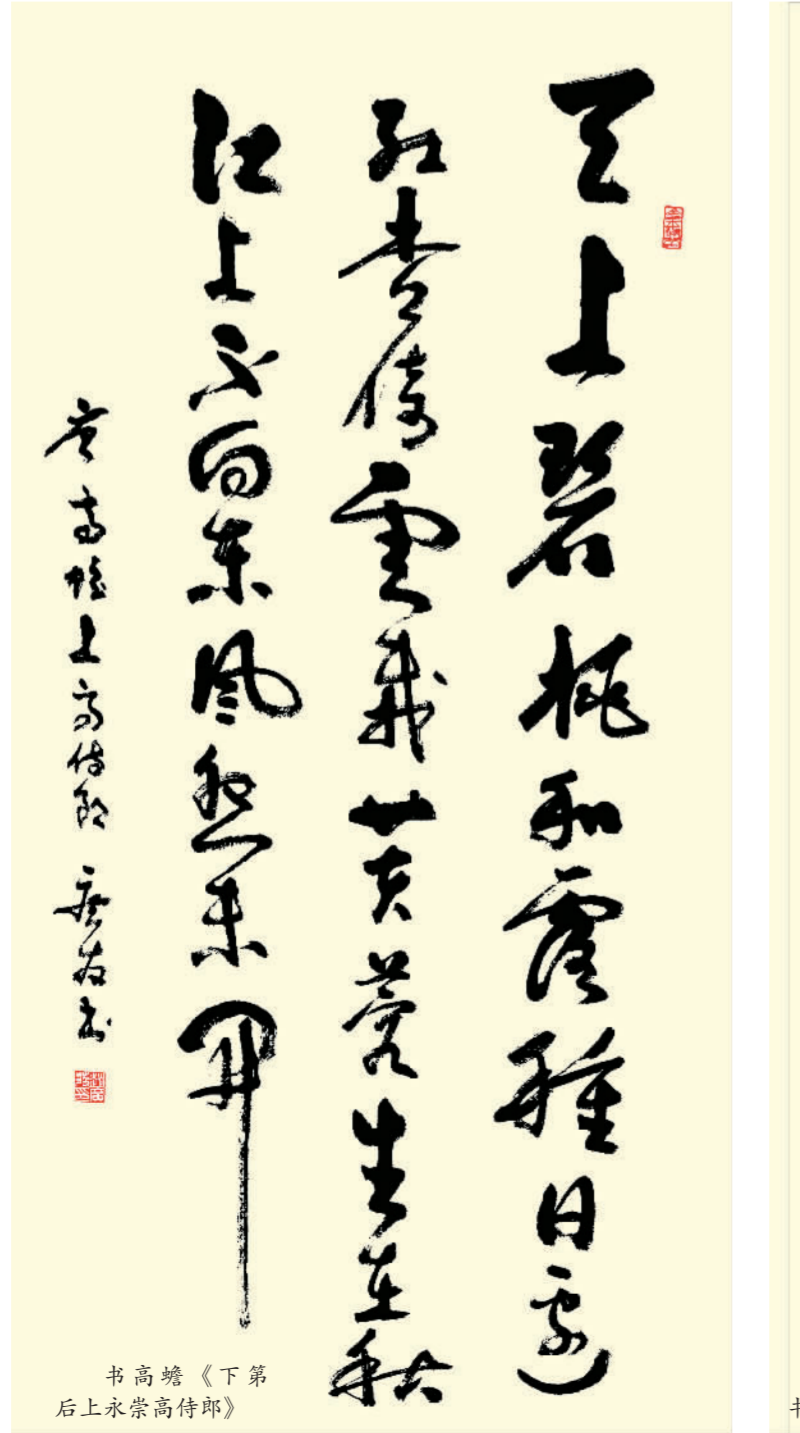 天上碧桃和露種日邊
紅杏倚雲栽芙蓉生在秋
江上不向東風怨未開
唐高蟾上高侍郎 友书
书高蟾《下第
后上永崇高侍郎》